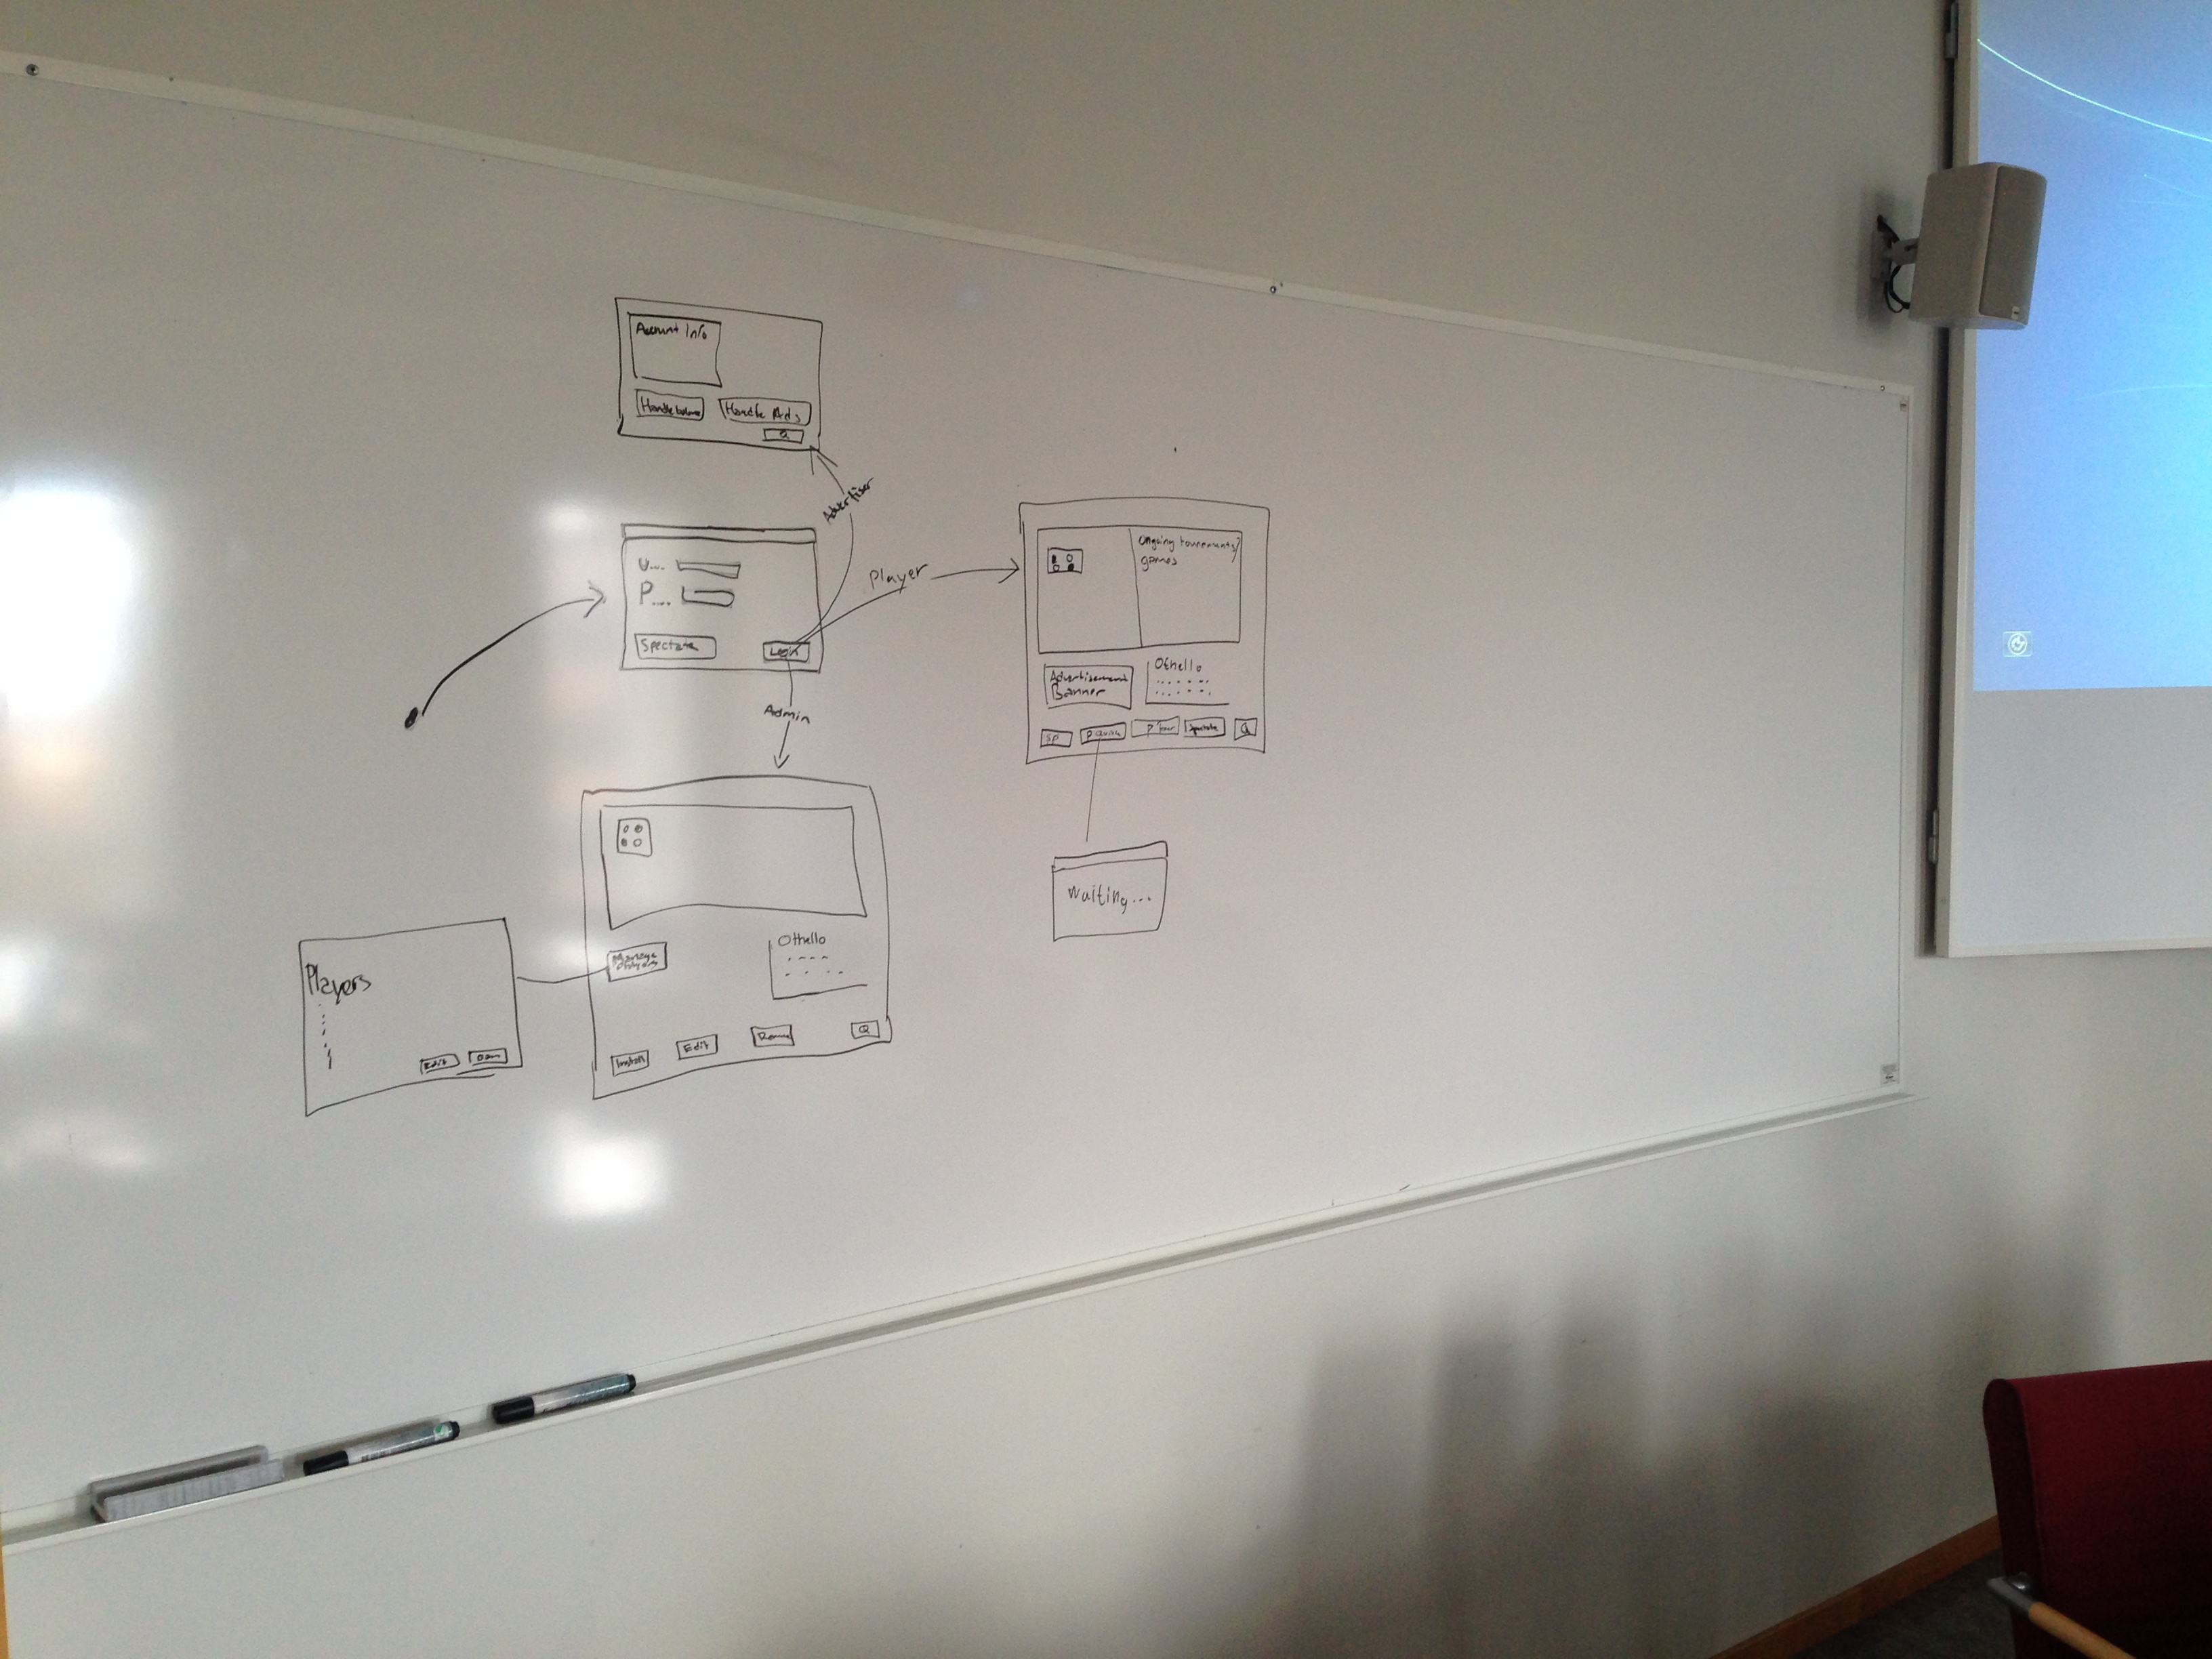 Account Info
Handle balance
Handle Ads
Q
Advertiser
U...
P....
Spectate
Login
Player
Admin
Ongoing tournements/
games
Advertisement
Banner
Othello
SP
P Quick
P Tour
Spectate
Q
Waiting...
Manage
Players
Othello
Install
Edit
Q
Players
Edit